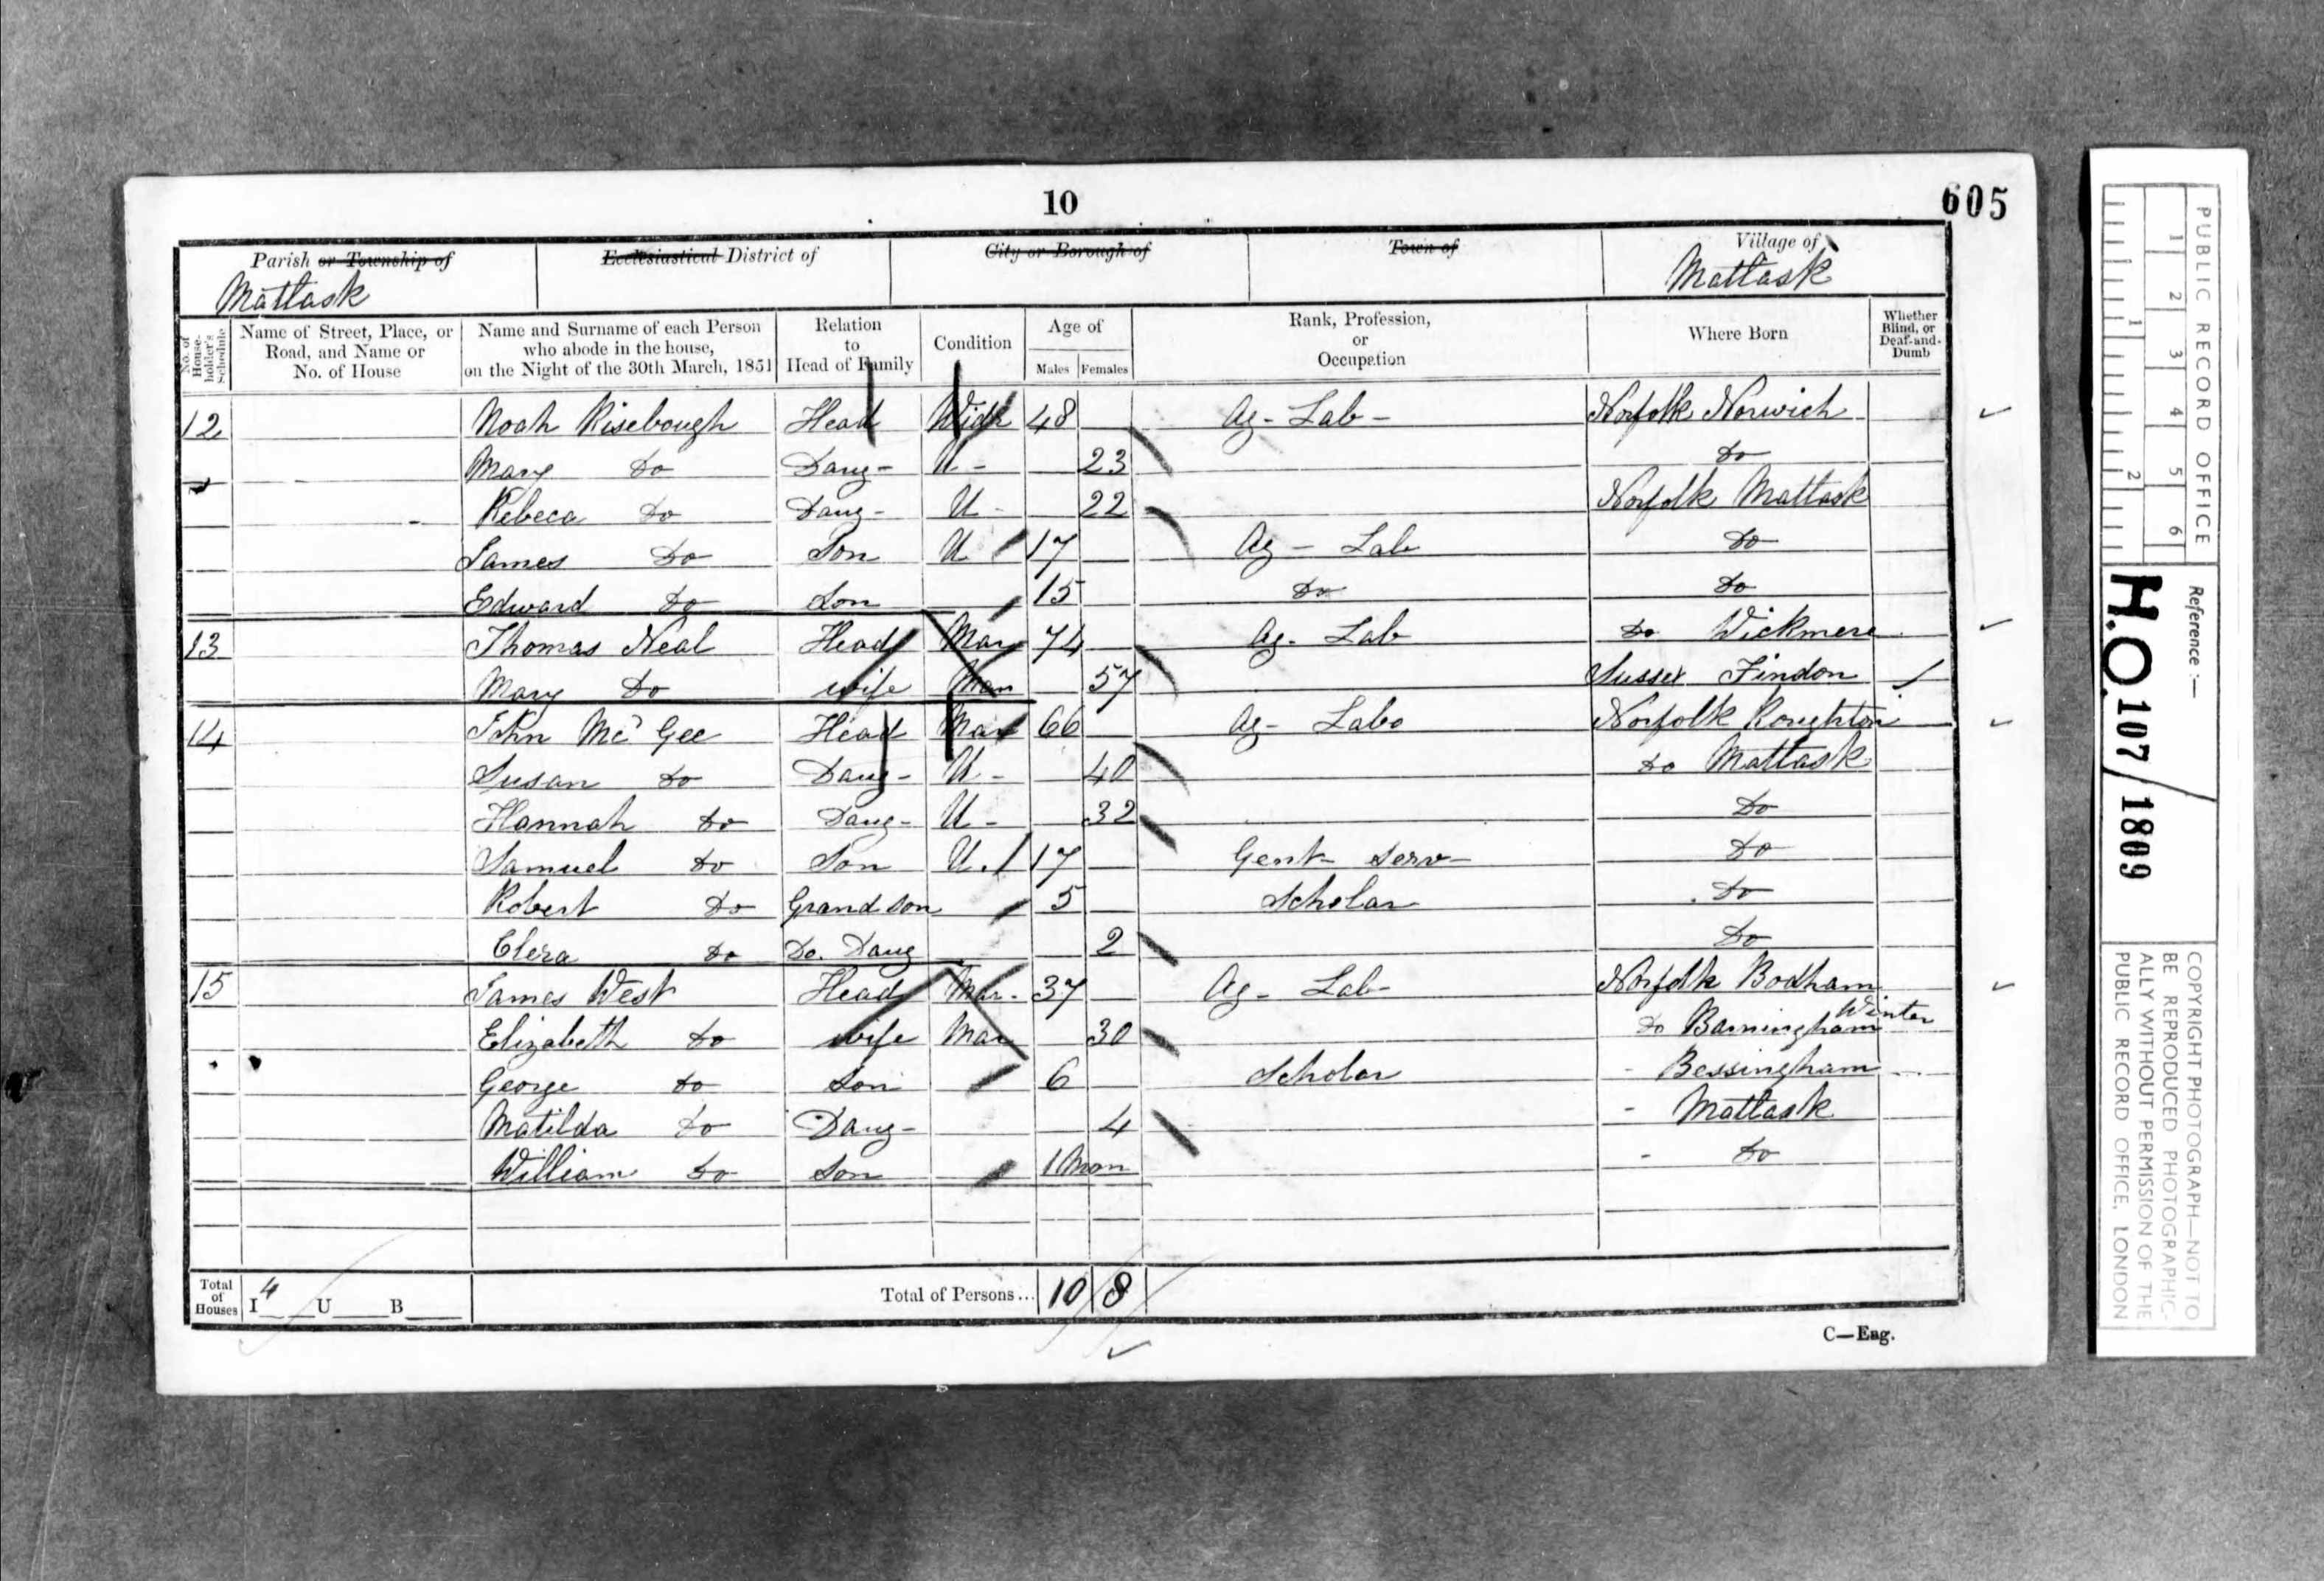 10
605
Parish or Township of Ecclesiastical District of City or Borough of Town of Village of
Mattask Mattask
No. of House-holder's Schedule
Name of Street, Place, or Road, and Name or No. of House
Name and Surname of each Person who abode in the house, on the Night of the 30th March, 1851
Relation to Head of Family
Condition
Age of
Males Females
Rank, Profession, or Occupation
Where Born
Whether Blind, or Deaf-and-Dumb
12 Noah Risebough Head Widr 48 Ag - Lab - Norfolk Norwich
Mary Do Daug - U - 23 Do
Rebeca Do Daug - U - 22 Norfolk Mattask
James Do Son U 17 Ag - Lab Do
Edward Do Son 15 Do Do
13 Thomas Neal Head Mar 74 Ag - Lab Do Wickmere
Mary Do wife Mar 57 Sussex Findon
14 John Mc Gee Head Mar 66 Ag - Labo Norfolk Roughton
Susan Do Daug - U - 40 Do Mattask
Hannah Do Daug - U - 32 Do
Samuel Do Son U. 17 Gent - Serv - Do
Robert Do Grandson 5 Scholar Do
Clera Do Do. Daug 2 Do
15 James West Head Mar - 37 Ag - Lab - Norfolk Bodham
Elizabeth Do wife Mar 30 Do Barningham Winter
George Do Son 6 Scholar - Bessingham
Matilda Do Daug - 4 - Mattask
William Do Son 1 Mon - Do
Total of Houses I 4 U B Total of Persons... 10 8
C—Eng.
PUBLIC RECORD OFFICE
1 2 3 4 5 6
1 2
Reference :—
H.O. 107/1809
COPYRIGHT PHOTOGRAPH—NOT TO
BE REPRODUCED PHOTOGRAPHIC-
ALLY WITHOUT PERMISSION OF THE
PUBLIC RECORD OFFICE, LONDON